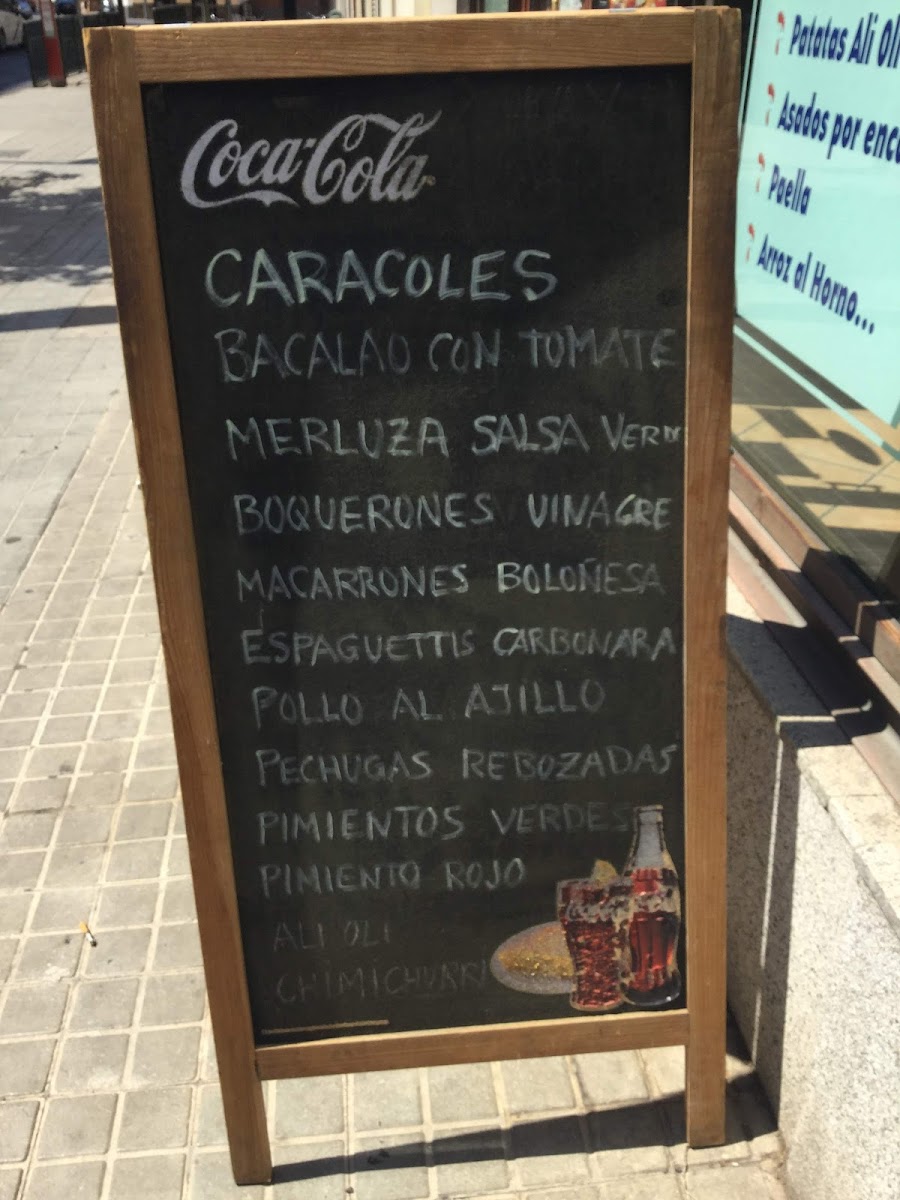 Coca-Cola
CARACOLES
BACALAO CON TOMATE
MERLUZA SALSA VERDE
BOQUERONES VINAGRE
MACARRONES BOLOÑESA
ESPAGUETTIS CARBONARA
POLLO AL AJILLO
PECHUGAS REBOZADAS
PIMIENTOS VERDES
PIMIENTO ROJO
ALI OLI
CHIMICHURRI
Patatas Ali Oli
Asados por enca
Paella
Arroz al Horno...